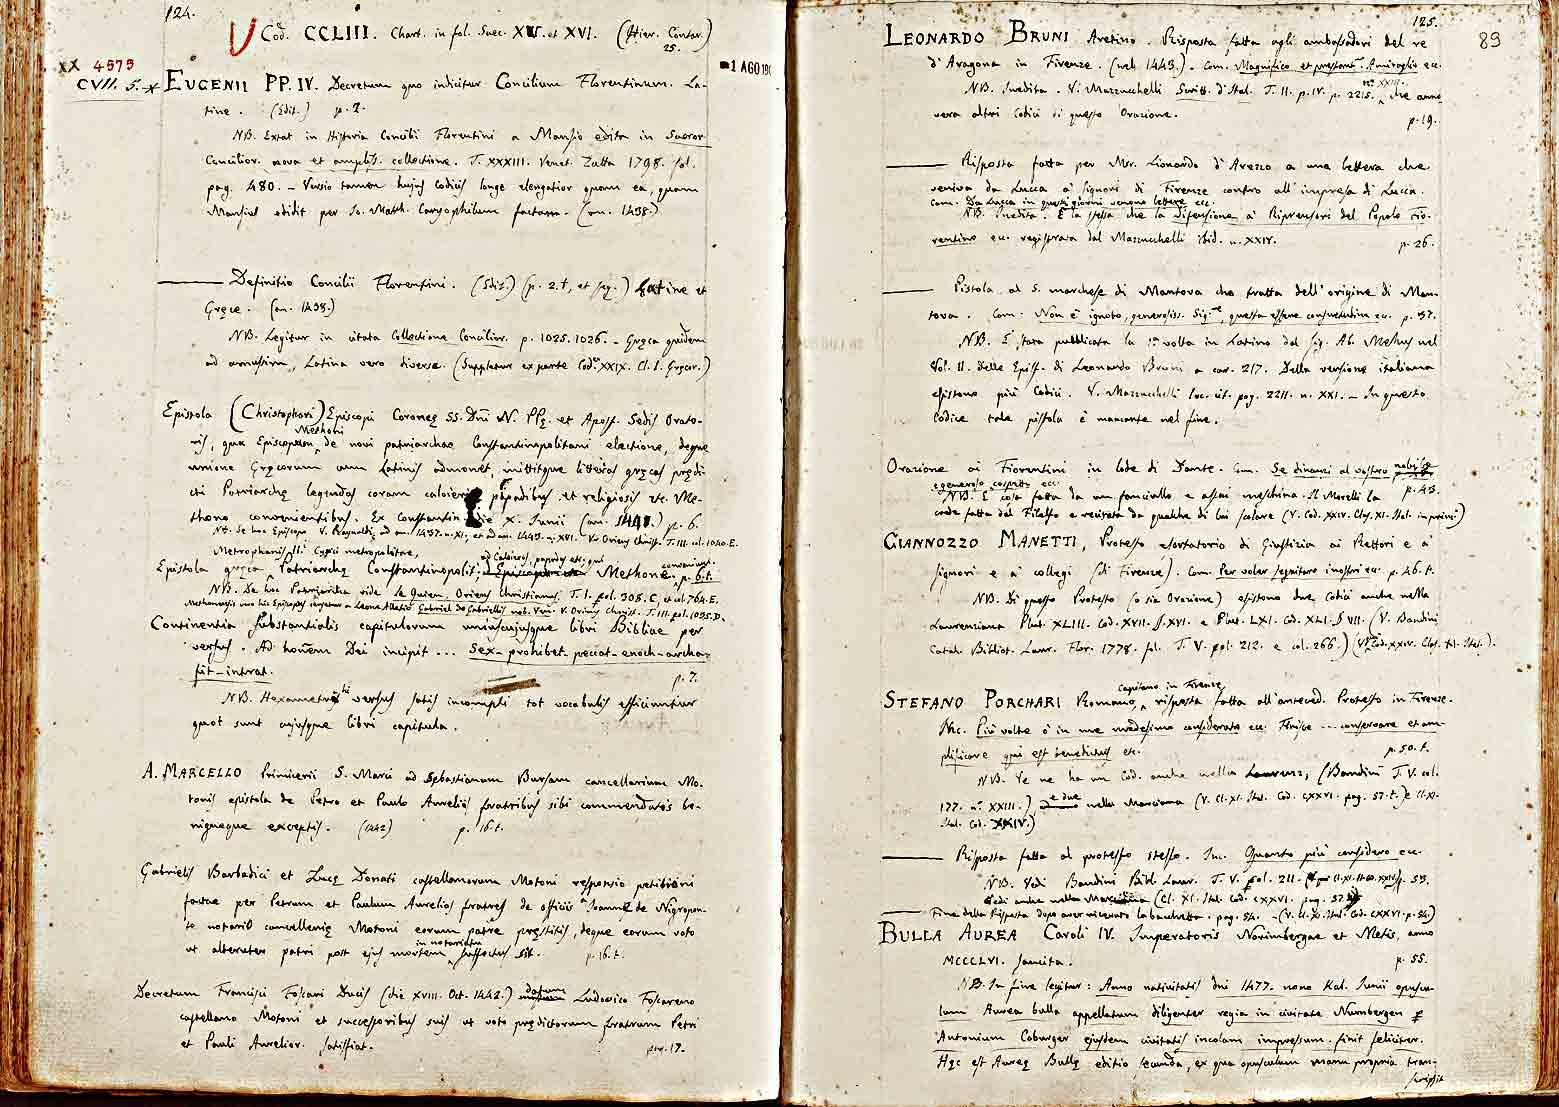 124.
Cod. CCLIII. Chart. in fol. Saec. XV. et XVI. (Hier. Contar.)
25.
XX 4575
CVII. 5.
1 AGO 190
EUGENII PP. IV. Decretum quo indicitur Concilium Florentinum. La-
tine. (Edit.) p. 2.
NB. Extat in Historia Concilii Florentini a Mansio edita in Sacror.
Concilior. nova et ampliss. collectione. T. XXXIII. Venet. Zatta 1798. fol.
pag. 480. – Versio tamen hujus codicis longe elegantior quam ea, quam
Mansius edidit per Jo. Matth. Caryophilum factam. (an. 1438.)
Definitio Concilii Florentini. (Edit.) (p. 2. t, et seq.) Latine et
Græce. (an. 1438.)
NB. Legitur in citata Collectione Concilior. p. 1025. 1026. – Græca quidem
ad amussim, Latina vero diverse. (Suppletur ex parte Cod. XXIX. Cl. I. Græcor.)
Epistola (Christophori) Episcopi Coroneę SS. Dñi N. PPę. et Apost. Sedis Orato-
Methoni
ris, qua Episcopum, de novi patriarchae Constantinopolitani electione, deque
unione Gręcorum cum Latinis admonet, mittitque litteras gręcas prędi-
cti Patriarchę legendas coram calojeris papadibus et religiosis etc. Me-
thono convenientibus. Ex Constantin. die X. Junii (an. 1441.) p. 6.
NB. De hoc Episcopo V. Raynaldi, ad an. 1437. n. XI, et ad an. 1443. n. XVI. Vid. Oriens Christ. T. III. col. 1040. E.
Metrophanis, Cypri metropolitae,
ad Calojeros, papadas etc, qui
Epistola gręca Patriarchę Constantinopolit. Methone convenirent. p. 6. t.
NB. De hoc Patriarcha vide Le Quien, Oriens Christianus. T. I. fol. 308. C, et col. 764. E.
Gabriel de Gabriellis nob. Ven. V. Oriens Christ. T. III. fol. 1035. D.
Continentia substantialis capitulorum uniuscujusque libri Bibliae per
versus. Ad honem Dei incipit ... Sex – prohibet – peccat – enoch – archa –
fit – intrat. p. 7.
NB. Hexametri versus satis incompti tot vocabulis efficiuntur
quot sunt cujusque libri capitula.
A. MARCELLO Primicerii S. Marci ad Sebastianum Bursam cancellarium Mo-
tonis epistola de Petro et Paulo Aureliis fratribus sibi commendatis be-
nigneque exceptis. (1442) p. 16. t.
Gabrielis Barbadici et Lucę Donati castellanorum Motoni responsio petitioni
factae per Petrum et Paulum Aurelios fratres de officiis Joannis de Nigropon-
te notarii cancellerię Motoni eorum patre pręstitis, deque eorum voto
in notariatu
ut alteruter patri post ejus mortem suffectus sit. p. 16. t.
Decretum Francisci Foscari Ducis (die XVIII. Oct. 1442.) datum Ludovico Foscareno
castellano Motoni et successoribus suis ut voto prędictorum fratrum Petri
et Pauli Aurelior. satisfiat. pag. 17.
125.
89
LEONARDO BRUNI Aretino. Risposta fatta agli ambasciadori del re
d'Aragona in Firenze. (nel 1443.). Com. Magnifico et prestante Amiraglio ec.
n° XXIII.
NB. Inedita. V. Mazzuchelli Scritt. d'Ital. T. II. p. IV. p. 2215. che anno-
vera altri Codici di questa Orazione. p. 19.
Risposta fatta per Msr. Lionardo d'Arezzo a una lettera che
veniva da Lucca a' signori di Firenze contro all'impresa di Lucca.
Com. Da Lucca in questi giorni venono lettere ec.
NB. Inedita. È la stessa che la Difensione a' Riprensori del Popolo Fio-
rentino ec. registrata dal Mazzuchelli ibid. n. XXIV. p. 26.
Pistola al S. marchese di Mantova che tratta dell'origine di Man-
tova. Com: Non è ignoto, generosiss. Sig.re, questa essere consuetudine ec. p. 37.
NB. È stata pubblicata la 1a volta in Latino dal Sig. Ab. Mehus nel
Vol. II. delle Epist. di Leonardo Bruni a car. 217. Della versione italiana
esistono più Codici. V. Mazzuchelli loc. cit. pag. 2211. n. XXI. – In questo
Codice tale pistola è mancante nel fine.
Orazione ai Fiorentini in lode di Dante. Com. Se dinanzi al vostro nobile
e generoso cospetto ec. p. 43.
NB. È cosa fatta da un fanciullo e assai meschina. Il Morelli la
crede fatta dal Filelfo e recitata da qualche di lui scolare (V. Cod. XXIV. Clas. XI. Ital. in principi)
GIANNOZZO MANETTI, Protesto esortatorio di Giustizia ai Rettori e a'
signori e a' collegi (di Firenze). Com. Per voler seguitare inostri ec. p. 46. t.
NB. Di questo Protesto (o sia Orazione) esistono due Codici anche nella
Laurenziana Plut. XLIII. Cod. XVII. §. XVI. e Plut. LXI. Cod. XLI. § VII. (V. Bandini
Catal. Bibliot. Laur. Flor. 1778. fol. T. V. pol. 212. e col. 266.) (V. Cod. XXIV. Clas. XI. Ital.).
Capitano in Firenze
STEFANO PORCHARI Romano, risposta fatta all'anteced. Protesto in Firenze.
Inc. Più volte ò in me medesimo considerato ec. Finisce --- conservare et am-
plificare qui est benedictus etc. p. 50. t.
NB. Ve ne ha un Cod. anche nella Laurenz, (Bandini T. V. col.
177. n° XXIII.) e due nella Marciana (V. Cl. XI. Ital. Cod. CXXVI. pag. 57. t.) e Cl. XI.
Ital. Cod. XXIV.)
Risposta fatta al protesto stesso. Inc. Quanto più considero ec.
NB. Vedi Bandini Bibl. Laur. T. V. pol. 211. p. 53.
Vedi anche nella Marciana (Cl. XI. Ital. Cod. CXXVI. pag. 52.
Fine della Risposta dopo aver ricevuto la bacchetta. pag. 54. – (V. Cl. XI. Ital. Cod. CXXVI. p. 54)
BULLA AUREA Caroli IV. Imperatoris Norimbergae et Metis, anno
MCCCLVI. sancita. p. 55.
NB. In fine legitur: Anno nativitatis dni 1477. nono Kal. Junii opuscu-
lum Aurea bulla appellatum diligenter regia in civitate Nurmbergen p
Antonium Coburger ejusdem civitatis incolam impressum. finit feliciter.
Hęc est Aureę Bullę editio secunda, ex qua opusculum manu propria tran-
scripsit